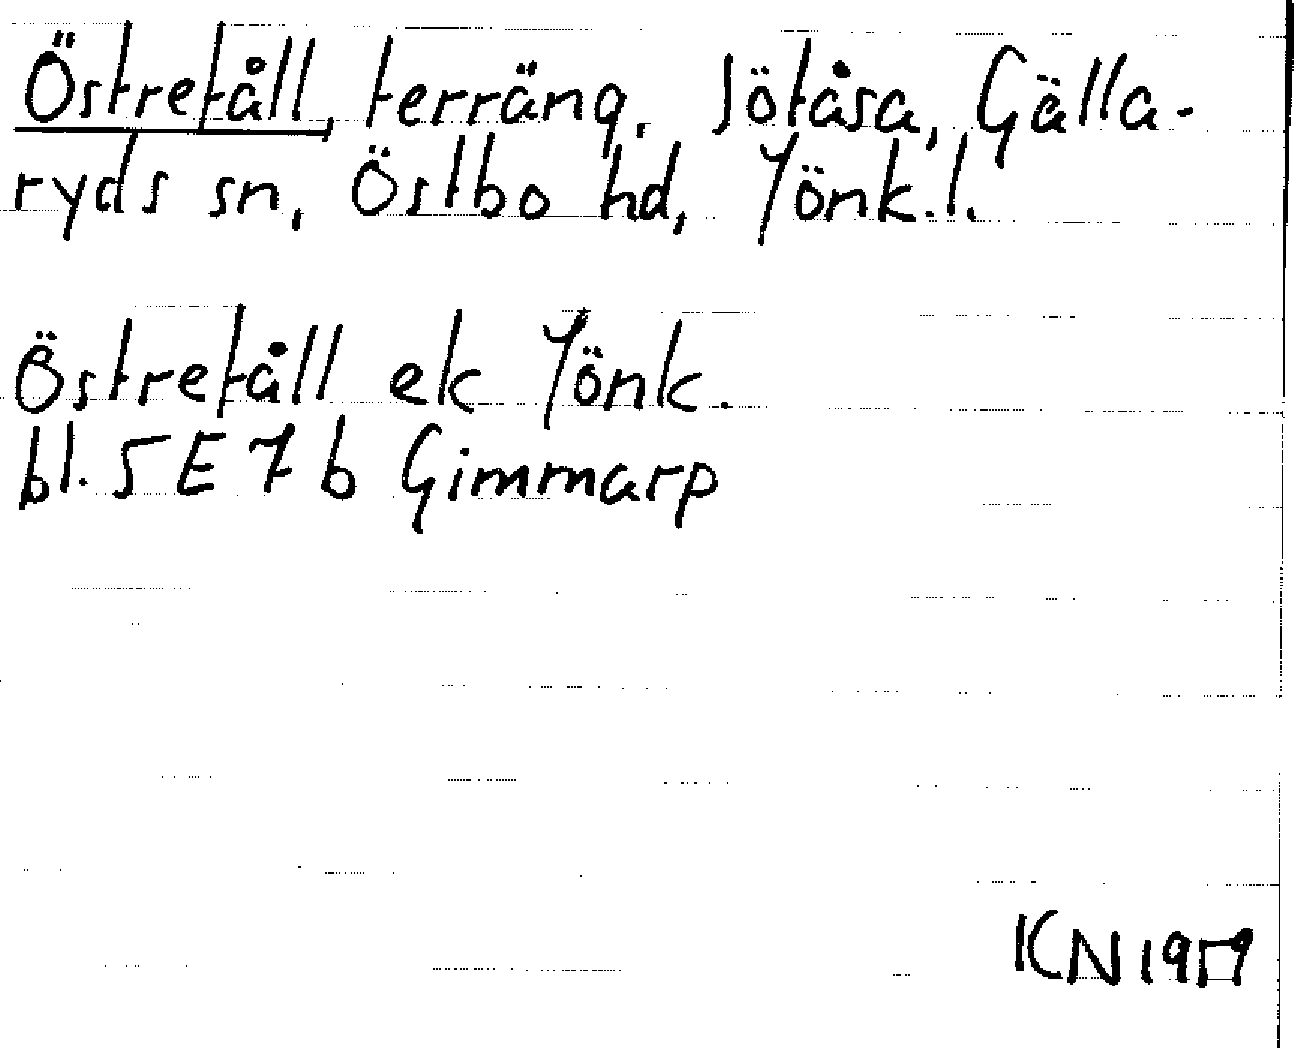 Östretåll, terräng. Sötåsa, Gälla-
ryds sn, Östbo hd, Jönk.l.
Östretåll ek Jönk.
bl. 5E 7b Gimmarp
KN